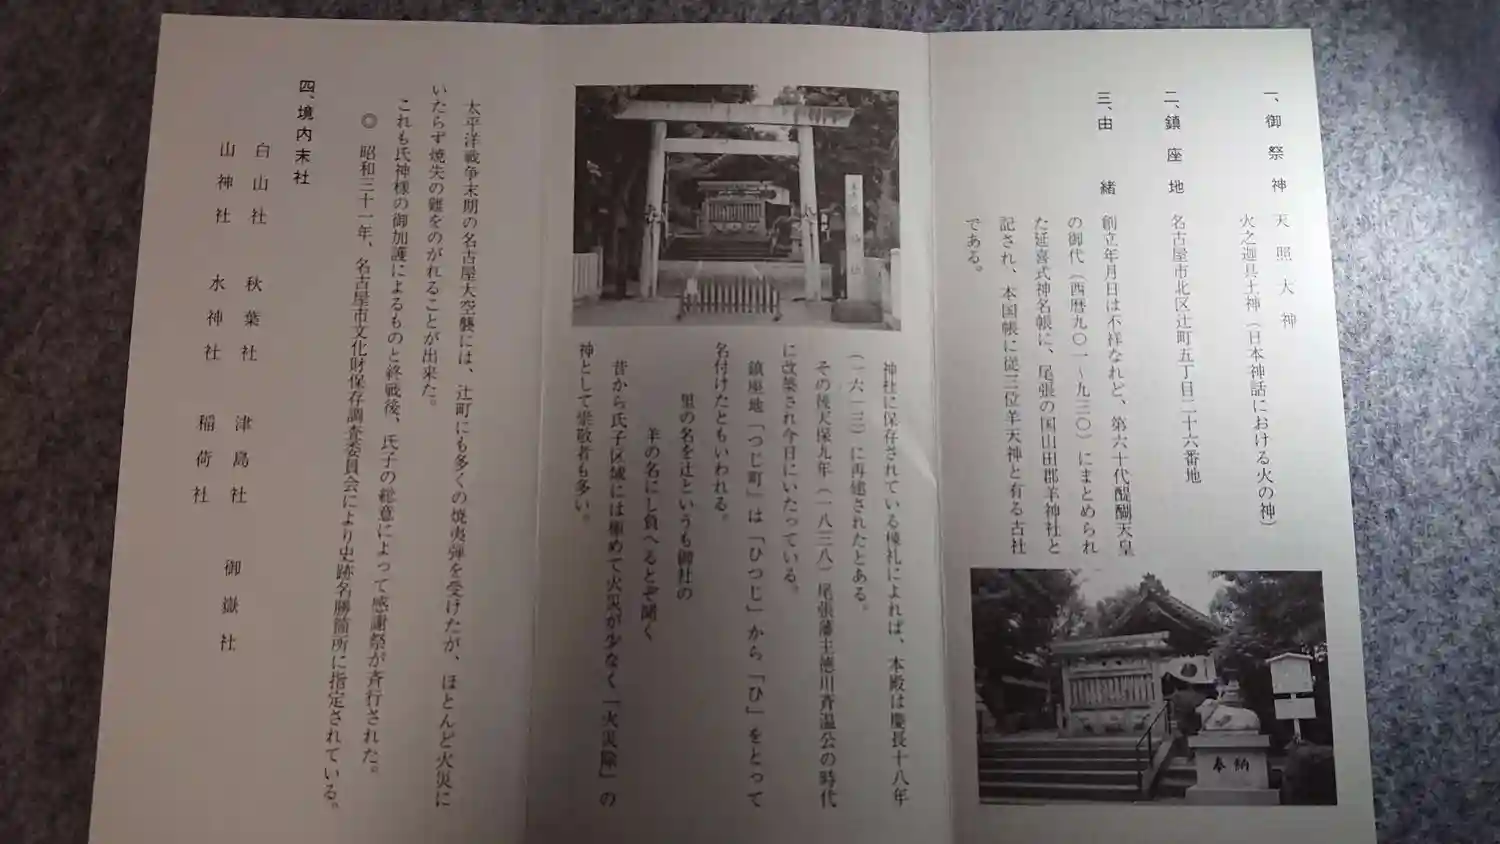 一、御祭神 天照大神
火之迦具土神(日本神話における火の神)
二、鎮座地 名古屋市北区辻町五丁目二十六番地
三、由緒 創立年月日は不祥なれど、第六十代醍醐天皇
の御代(西暦九〇一～九三〇)にまとめられ
た延喜式神名帳に、尾張の国山田郡羊神社と
記され、本国帳に従三位羊天神と有る古社
である。
奉納
神社に保存されている棟札によれば、本殿は慶長十八年
(一六一三)に再建されたとある。
その後天保九年(一八三八)尾張藩主徳川斉温公の時代
に改築され今日にいたっている。
鎮座地「つじ町」は「ひつじ」から「ひ」をとって
名付けたともいわれる。
里の名を辻というも御社の
羊の名にし負へるとぞ聞く
昔から氏子区域には極めて火災が少なく「火災除」の
神として崇敬者も多い。
太平洋戦争末期の名古屋大空襲には、辻町にも多くの焼夷弾を受けたが、ほとんど火災に
いたらず焼失の難をのがれることが出来た。
これも氏神様の御加護によるものと終戦後、氏子の総意によって感謝祭が斉行された。
◎ 昭和三十一年、名古屋市文化財保存調査委員会により史跡名勝箇所に指定されている。
四、境内末社
白山社 秋葉社 津島社 御嶽社
山神社 水神社 稲荷社